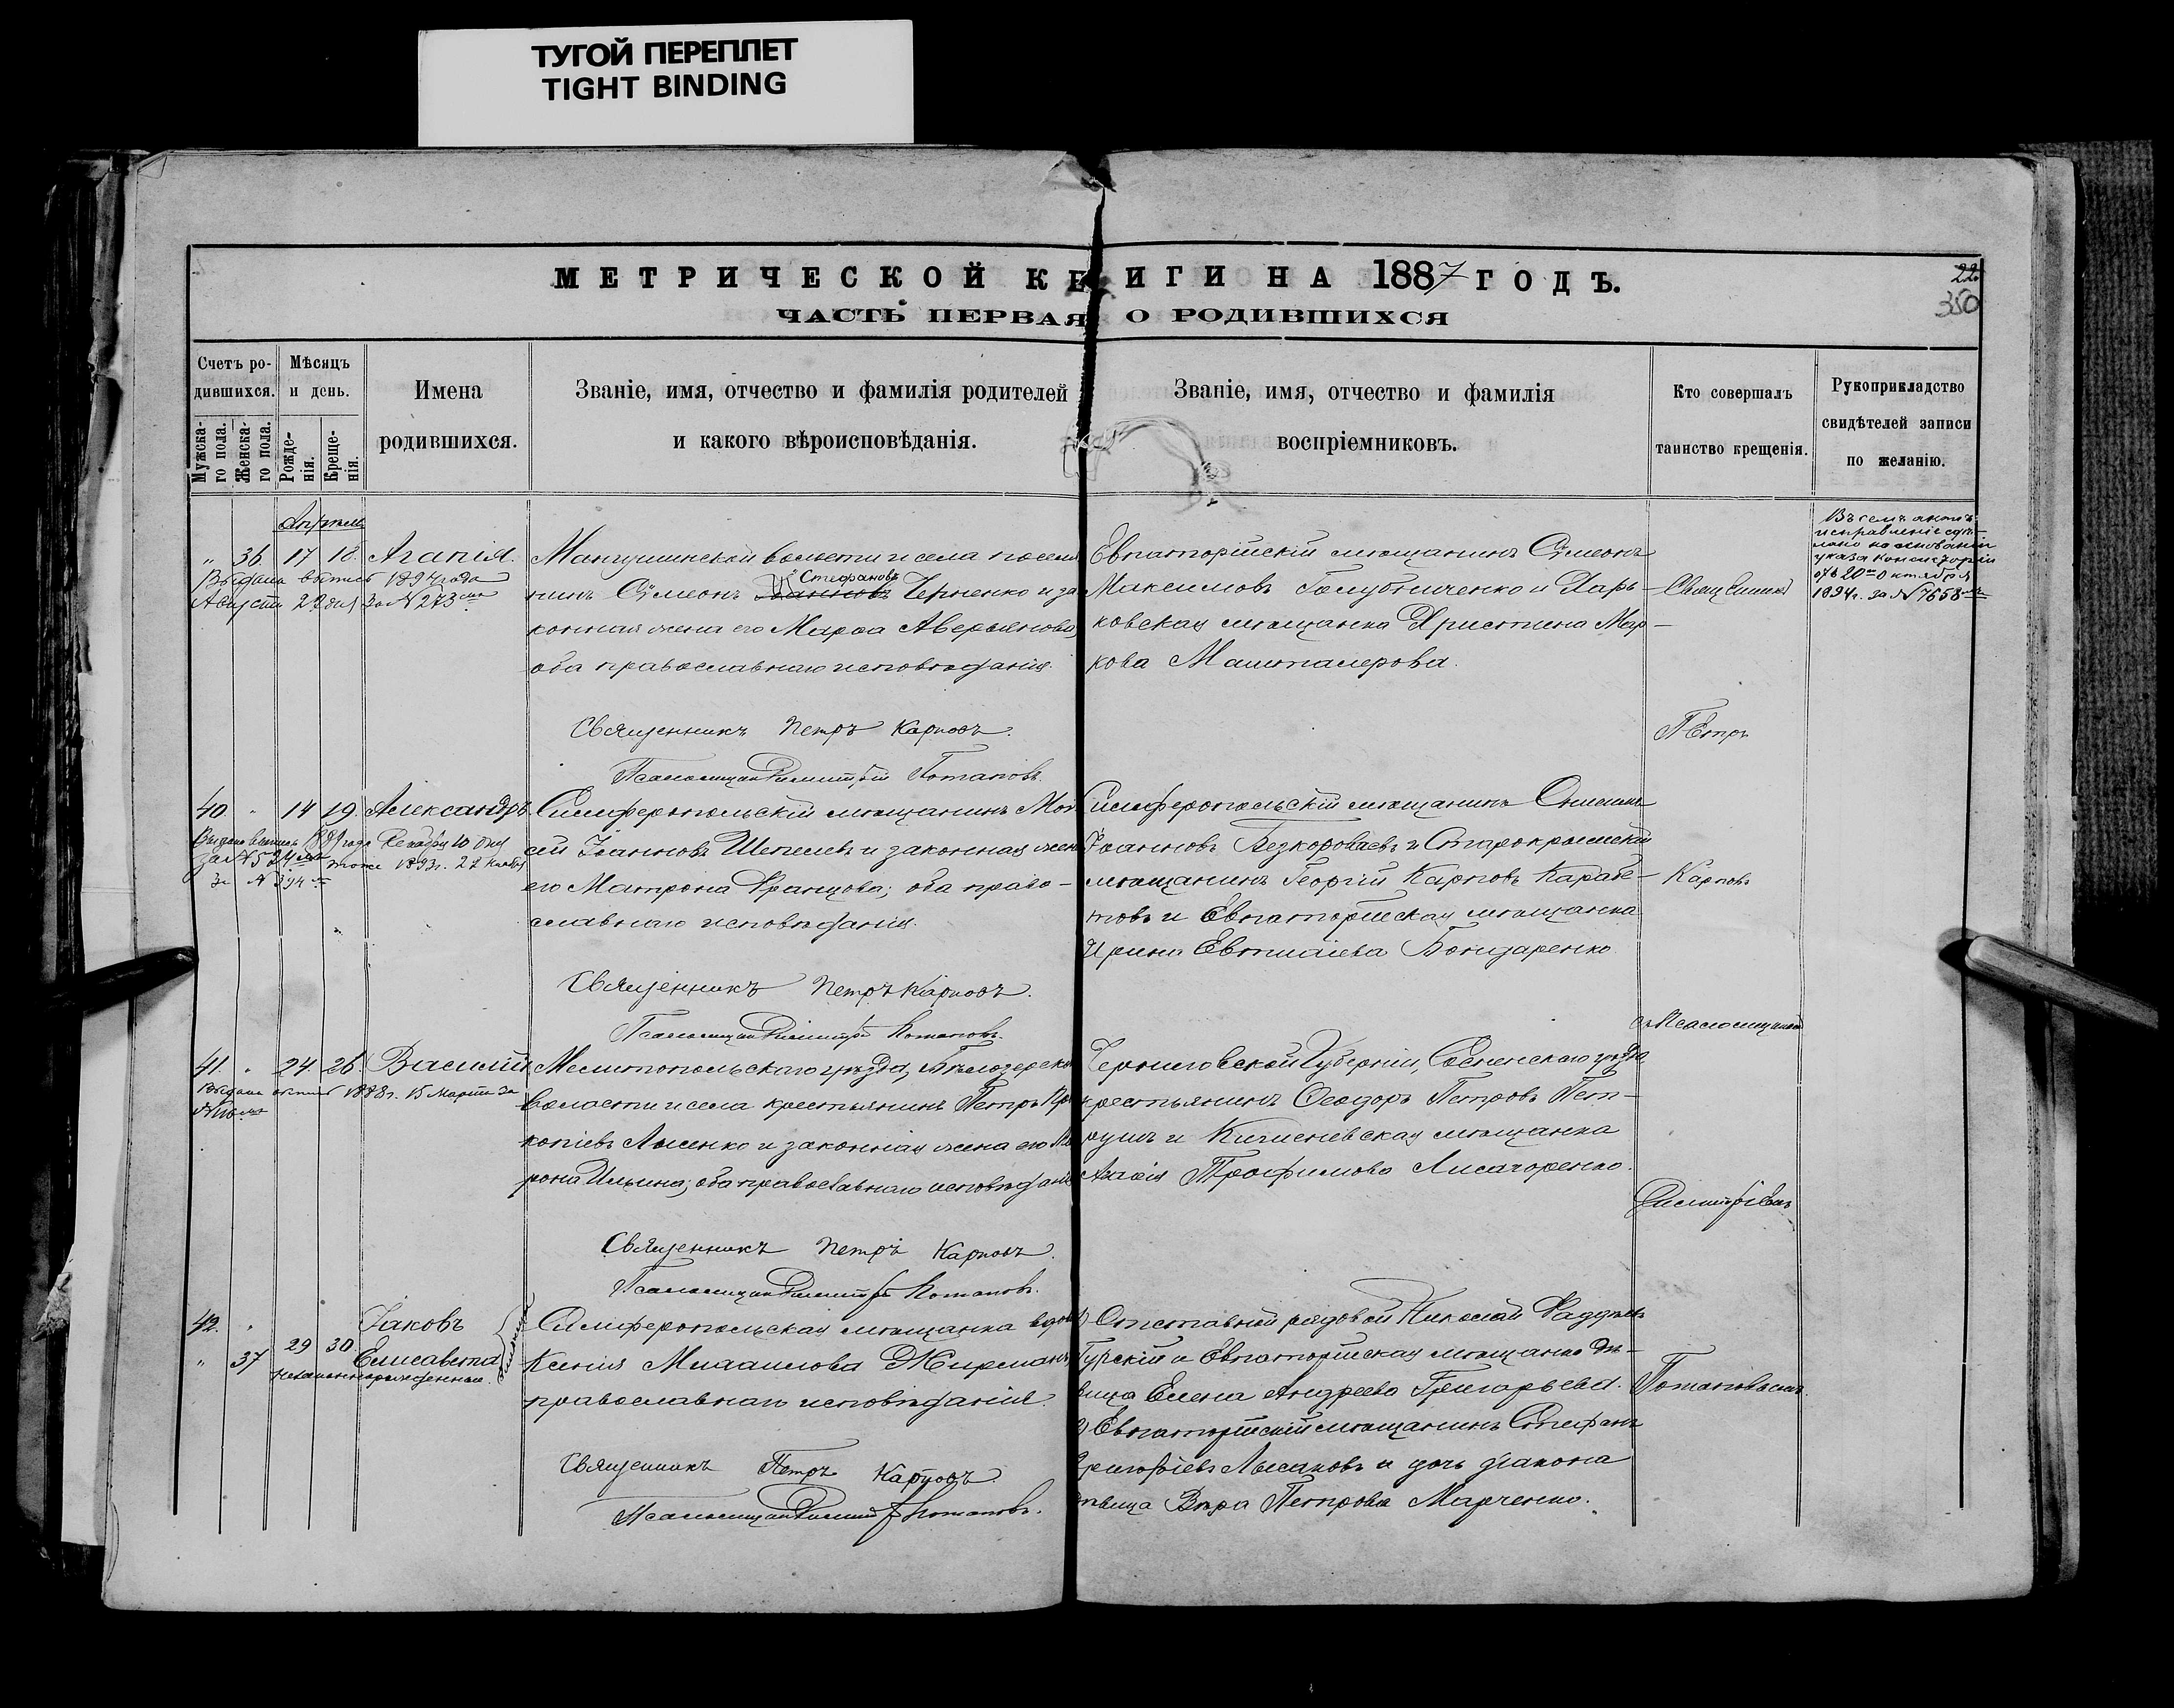 ТУГОЙ ПЕРЕПЛЕТ
TIGHT BINDING
МЕТРИЧЕСКОЙ КНИГИ НА 1887 ГОДЪ.
22
350
ЧАСТЬ ПЕРВАЯ О РОДИВШИХСЯ
Счетъ ро-
дившихся.
Мужска-
го пола.
Женска-
го пола.
Мѣсяцъ
и день.
Рожде-
нія.
Креще-
нія.
Имена
родившихся.
Званіе, имя, отчество и фамилія родителей
и какого вѣроисповѣданія.
Званіе, имя, отчество и фамилія
воспріемниковъ.
Кто совершалъ
таинство крещенія.
Рукоприкладство
свидѣтелей записи
по желанію.
Апрель
" 36. 17 18. Агапія.
Выдана выпись 1894 года
Августа 22 дня за № 273
Мангушинской волости и села поселя
нинъ Сѵмеонъ Стефановъ Черненко и за
конная жена его Марѳа Аверьянова,
оба православнаго исповѣданія.
Священникъ Петръ Карповъ.
Псаломщикъ Димитрій Потаповъ.
Евпаторійскій мѣщанинъ Сѵмеонъ
Максимовъ Голубниченко и Харь-
ковская мѣщанка Христина Мар-
кова Машталерова.
Священникъ
Петръ
Карповъ
съ Псаломщикомъ
Димитріемъ
Потаповымъ.
Въ семъ актѣ
исправленіе сдѣ-
лано на основаніи
указа Консисторіи
отъ 20го октября
1894 г. за № 7658
40. " 14 19. Александръ
Выдана выпись 1889 года Декабря 10 дня
за № 524 тоже 1893 г. 22
за № 394
Симферопольскій мѣщанинъ Мои
сей Іоанновъ Шепелевъ и законная жена
его Матрона Францова; оба право-
славнаго исповѣданія.
Священникъ Петръ Карповъ.
Псаломщикъ Димитрій Потаповъ.
Симферопольскій мѣщанинъ
Іоанновъ Безкороваевъ и Старокрымскій
мѣщанинъ Георгій Карповъ Карабе-
товъ и Евпаторійская мѣщанка
Ирина Бондаренко.
41. " 24. 26. Василій
Выдана выпись 1898 г. 15 Марта за
Мелитопольскаго уѣзда, Бѣлозерской
волости и села крестьянинъ Петръ Про
копіевъ Лысенко и законная жена его Мат
рона Ильина; оба православнаго исповѣданія
Священникъ Петръ Карповъ.
Псаломщикъ Димитрій Потаповъ.
Черниговской Губерніи, Сосненскаго уѣзда
крестьянинъ Ѳеодоръ Петровъ Пет-
рушъ и Кишеневская мѣщанка
Трофимова Лисагоренко.
42. " Іаковъ
29 30
" 37 Елисавета
незаконнорожденные.
близнецы
Симферопольская мѣщанка вдова
Ксенія Михаилова Жирманъ
православнаго исповѣданія.
Священникъ Петръ Карповъ
Псаломщикъ Димитрій Потаповъ.
1) Отставной рядовой Николай Фаддѣевъ
Гурскій и Евпаторійская мѣщанка дѣ-
вица Елена Андреева Григорьева.
2) Евпаторійскій мѣщанинъ Стефанъ
Григоріевъ Лысаковъ и дочь діакона
дѣвица Вѣра Петрова Марченко.